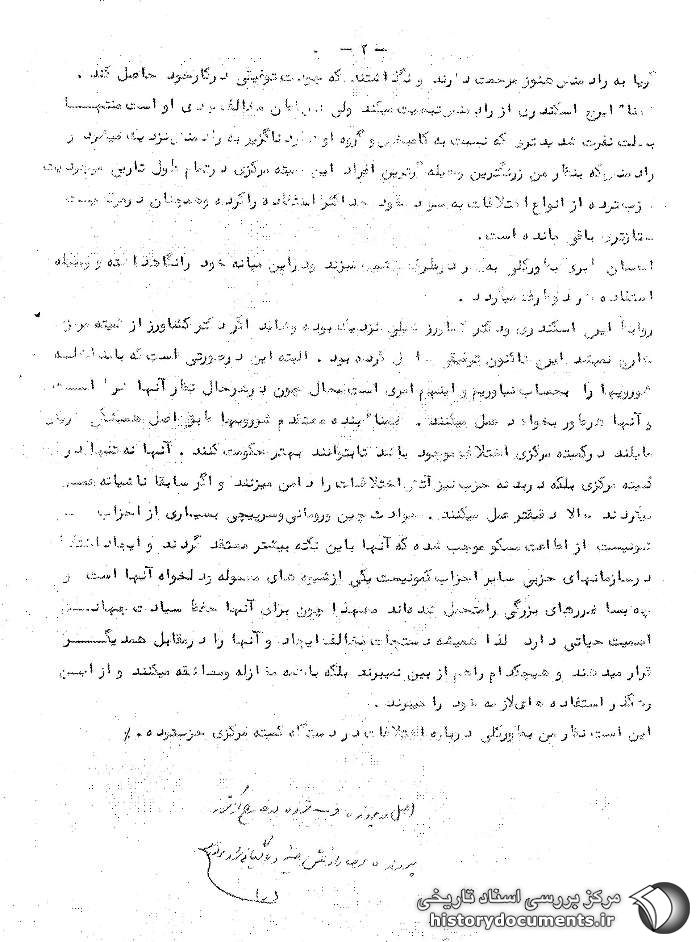 — ۲ —
گویا به رادمنش هنوز مرحمت دارند و نگذاشتند که جودت توفیقی درکارخود حاصل کند .
ضمنا" ایرج اسکندری از رادمنش تبعیت میکند ولی مخالف بودی او است منتهـا
بعلت نفرت شدیدتری که نسبت به کامبخش و گروه او دارد ناگزیر به رادمنش نزدیک میشود و
رادمنش که بنظر من زرنگترین وحیله گرترین افراد این کمیته مرکزی درتمام طول تاریخ موجودیت
حزب توده از انواع اختلافات به سود خود حداکثر استفاده راکرده وهمچنان در
ممتازتری باقی مانده است.
احسان طبری بطورکلی به هر دوطرف چشمک میزند ودراین میانه خود رانگاهداشته و وسیله
استفاده هر دوطرف میگردد .
روابط ایرج اسکندری ودکتر کشاورز خیلی نزدیک بوده وشاید اگر دکتر کشاورز از کمیته مرکزی
خارج نمیشد ایرج تاکنون توفیقی حاصل کرده بود . البته این درصورتی است که مداخله
شورویها را بحساب نیاوریم و اینهم امری است محال چون درهرحال نظر آنها شرط است
و آنها هرطور بخواهند عمل میکنند . ضمنا" بنده معتقدم شورویها طبق اصل همیشگی خویش
مایلند درکمیته مرکزی اختلاف موجود باشد تابتوانند بهتر حکومت کنند . آنها نه تنها در
کمیته مرکزی بلکه دربدنه حزب نیز آتش اختلافات را دامن میزنند و اگر سابقا ناشیانه عمل
میکردند حالا دقیقتر عمل میکنند . حوادث چین ورومانی وسرپیچی بسیاری از احزاب
کمونیست از اطاعت مسکو موجب شده که آنها باین نکته بیشتر معتقد گردند و ایجاد اختلاف
درسازمانهای حزبی سایر احزاب کمونیست یکی ازشیوه های معموله ودلخواه آنها است و
چه بسا ضررهای بزرگی رامتحمل شده‌اند معهذا چون برای آنها حفظ سیادت جهانـی
اهمیت حیاتی دارد لذا همیشه دستجات مخالف ایجاد و آنها را درمقابل همدیگـــر
قرار میدهند و هیچکدام راهم از بین نمیبرند بلکه باهمه مغازله ومعاشقه میکنند و از ایـن
رهگذر استفاده های لازمه خود را میبرند .
این است نظر من بطورکلی درباره اختلافات در دستگاه کمیته مرکزی حزب توده .٪
اصل در پرونده
پرونده رضا رادمنش
مرکز بررسی اسناد تاریخی
historydocuments.ir